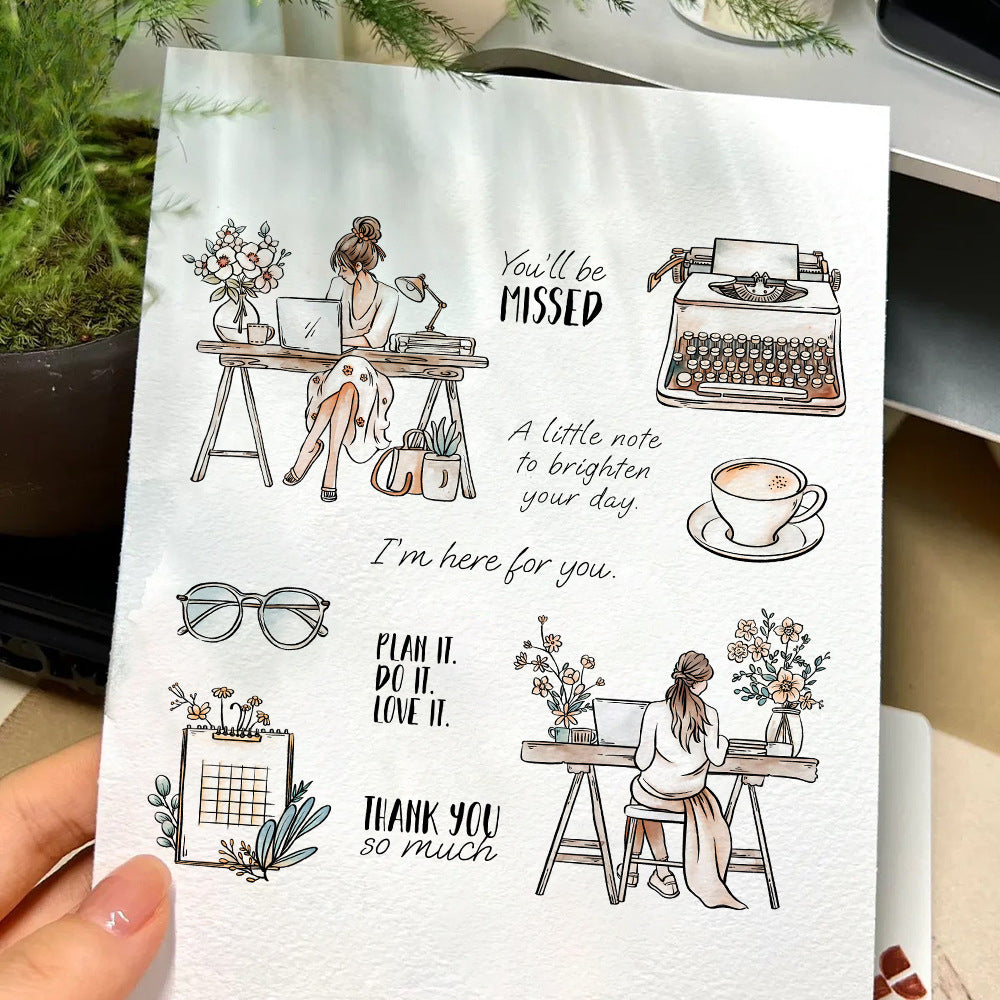 You'll be
MISSED
A little note
to brighten
your day.
I'm here for you.
PLAN IT.
DO IT.
LOVE IT.
THANK YOU
so much